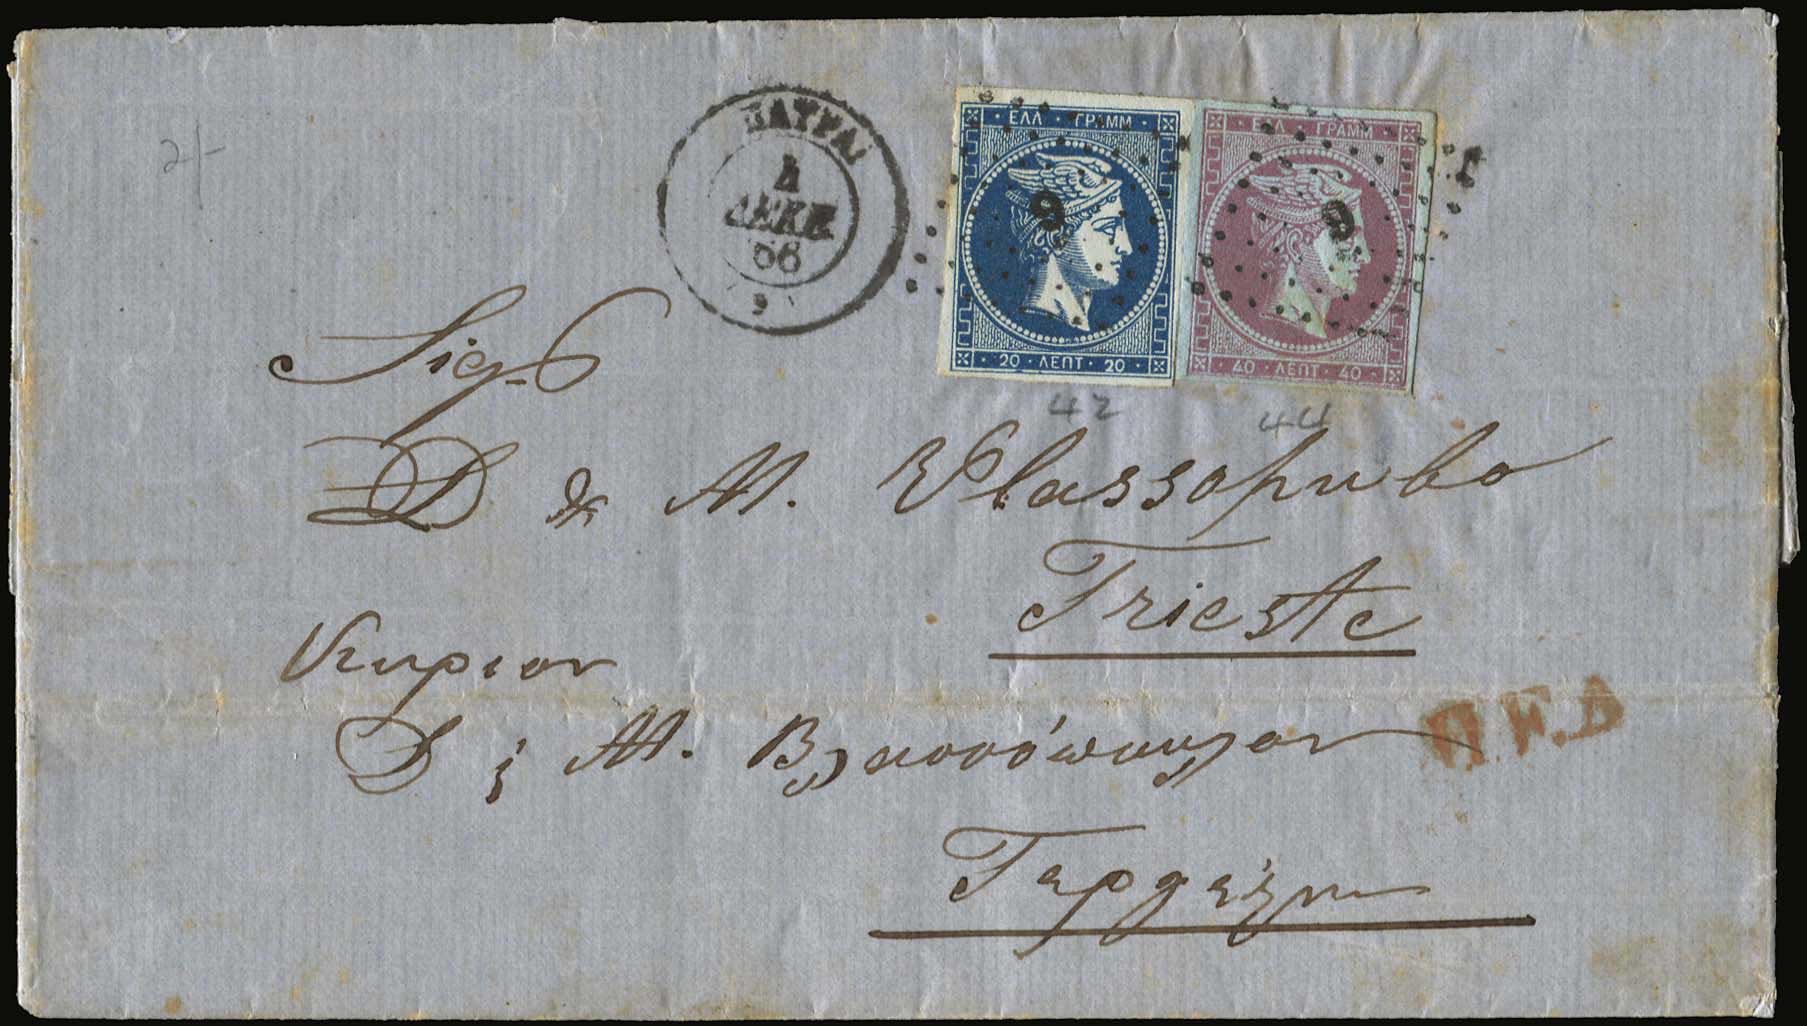 2/-
ΠΑΤΡΑΙ
4
ΔΕΚΕ
66
9
ΕΛΛ · ΓΡΑΜΜ
9
20 · ΛΕΠΤ · 20
ΕΛΛ · ΓΡΑΜΜ
9
40 · ΛΕΠΤ · 40
42
44
Sig.
D & M. Vlassopulo
Trieste
Κυριον
D & M. Βλασσόπουλον
Τεργέστην